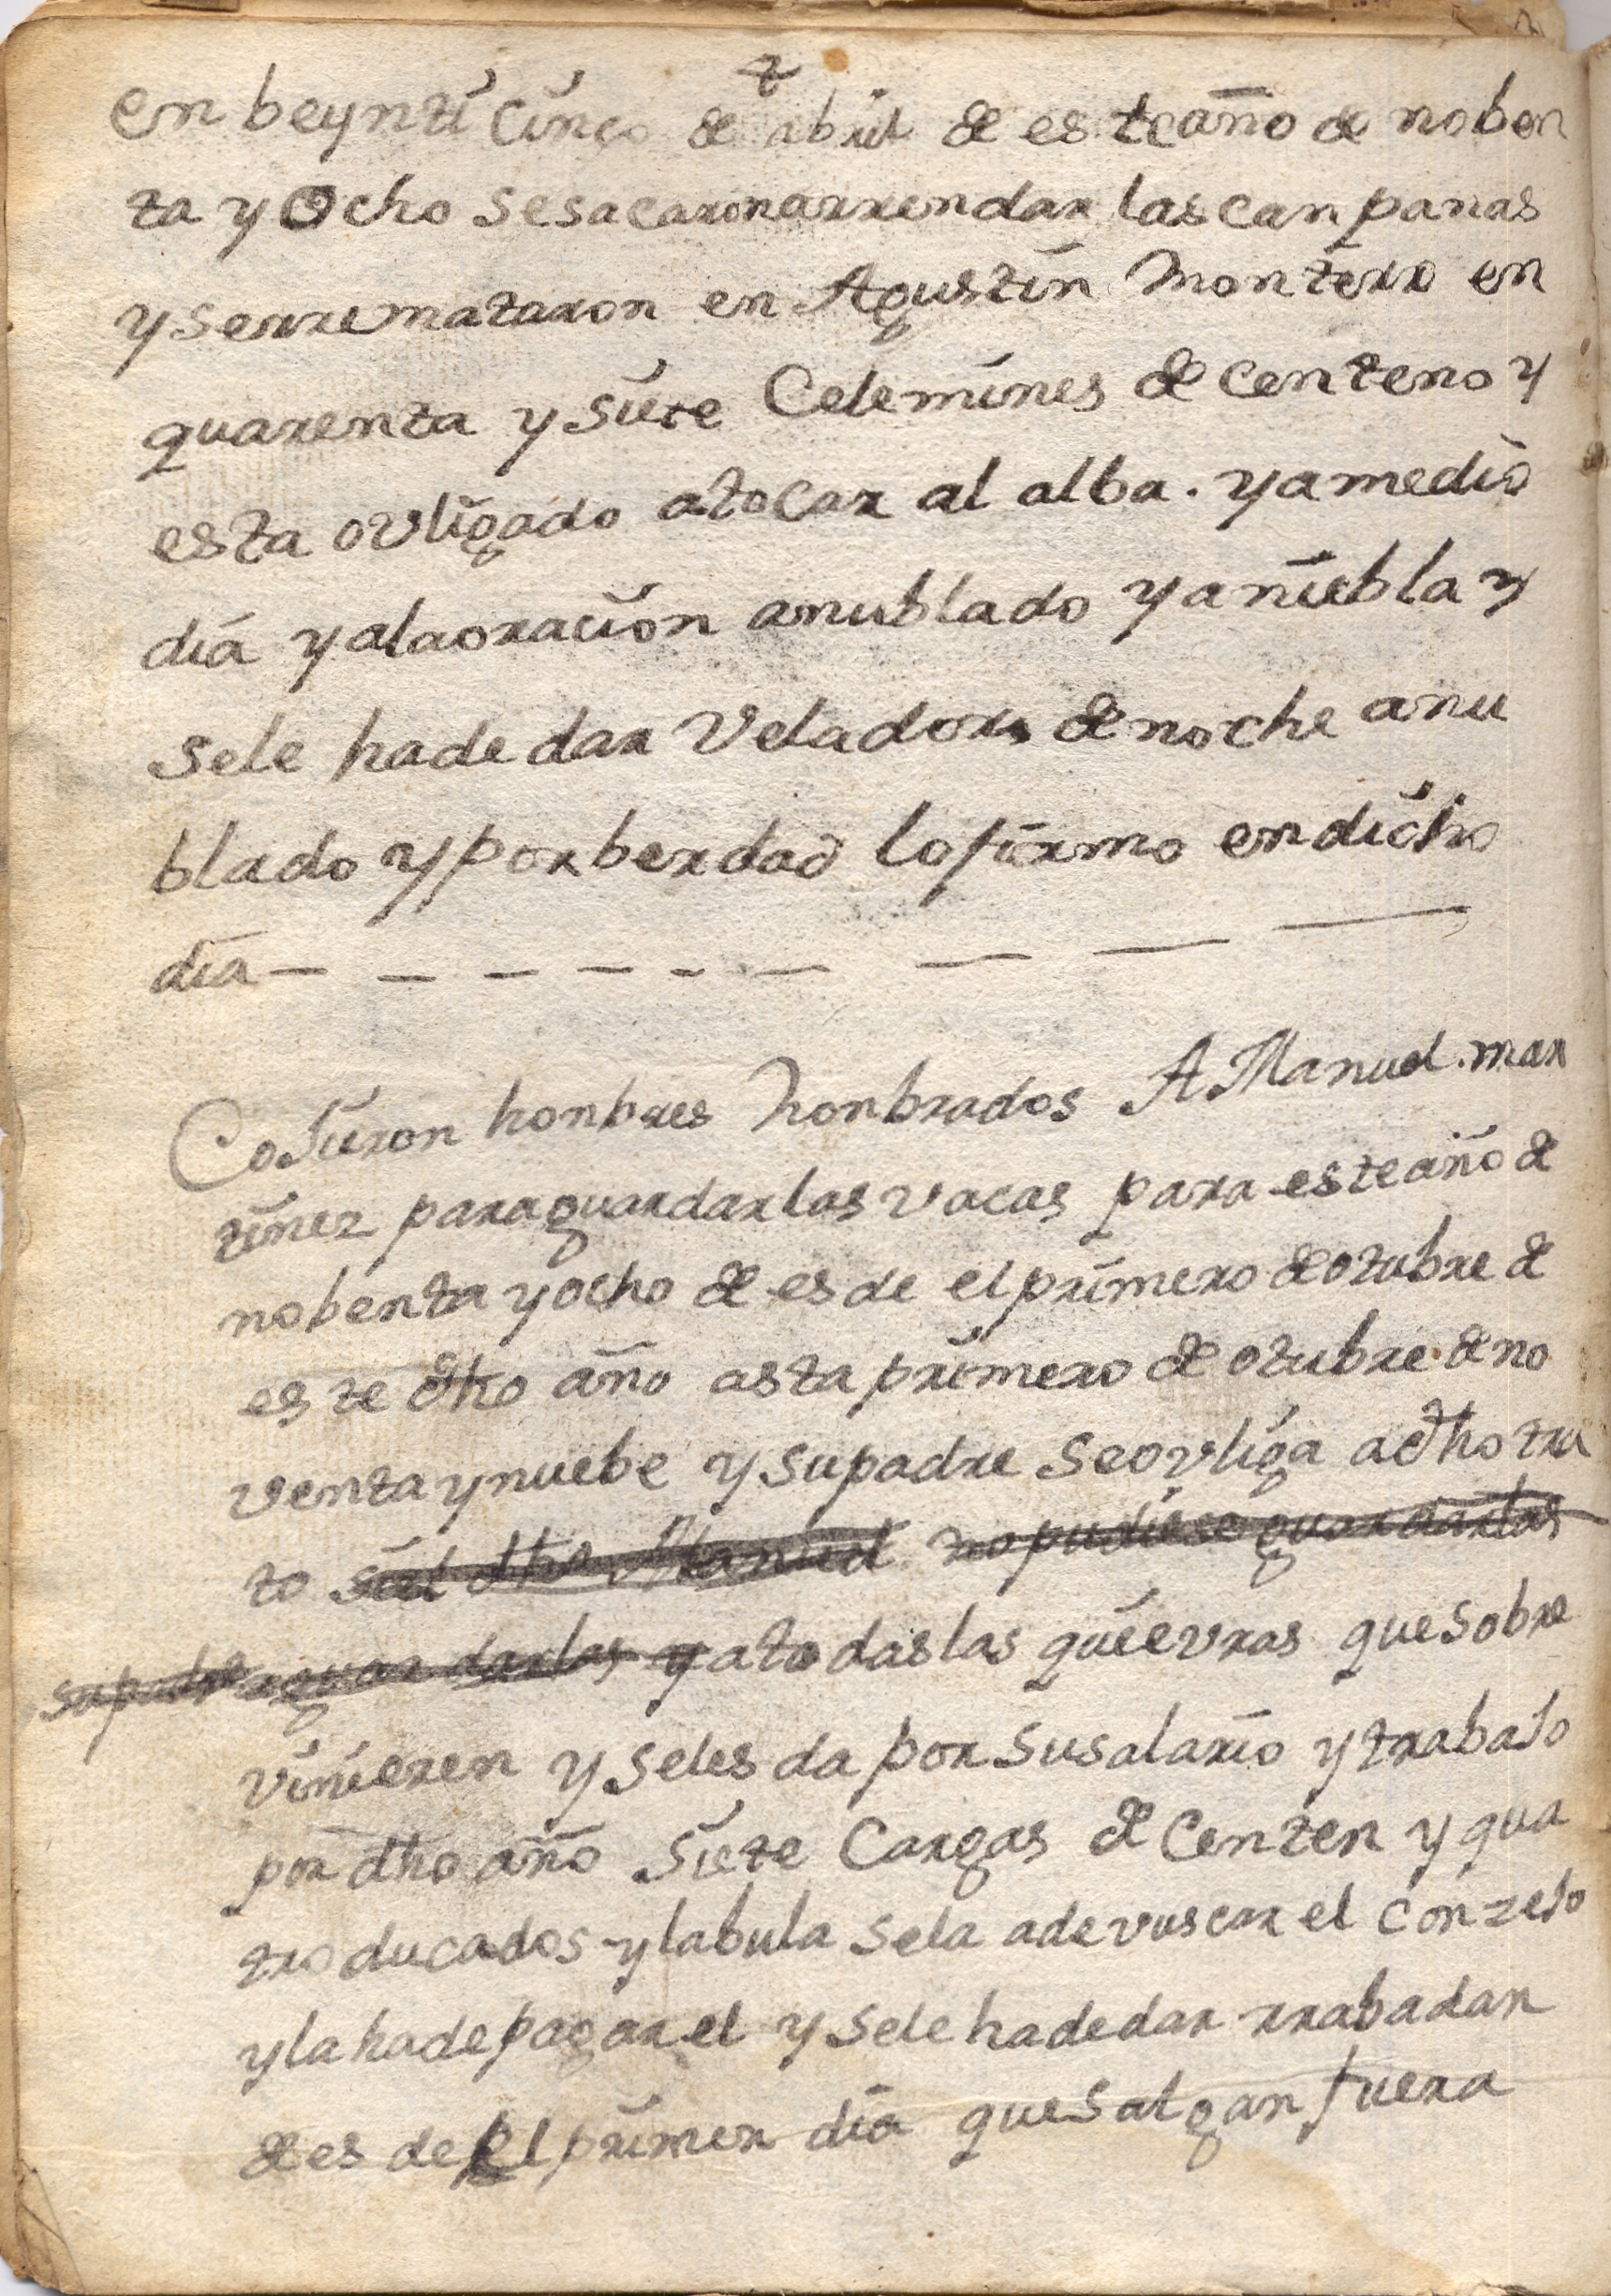 en beynti cinco de abril de este año de noben
ta y ocho se sacaron arrendar las canpanas
y serremataron en Agustin Montero en
quarenta y siete Celemines de centeno y
esta ovligado atocar al alba. y a medio
dia y alaoracion anublado y a niebla y
sele hade dar Veladores de noche anu
blado y por berdad lo firmo en dicho
dia
Cojieron honbres honbrados A Manuel. mar
tinez para guardar las vacas para este año de
nobenta y ocho de es de el primero de otubre de
este dho año asta primero de otubre de no
venta y nuebe y su padre se ovliga a dho tra
to si el dho Manuel no pudiese guardarlas
su padre a guardarlas y a todas las quievras que sobre
vinieren y seles da por su salario y trabajo
por dho año siete Cargas de Centen y qua
tro ducados y la bula sela ade vuscar el conzejo
y la hade pagar el y sele hade dar rrabadan
de es de el primer dia que salgan fuera